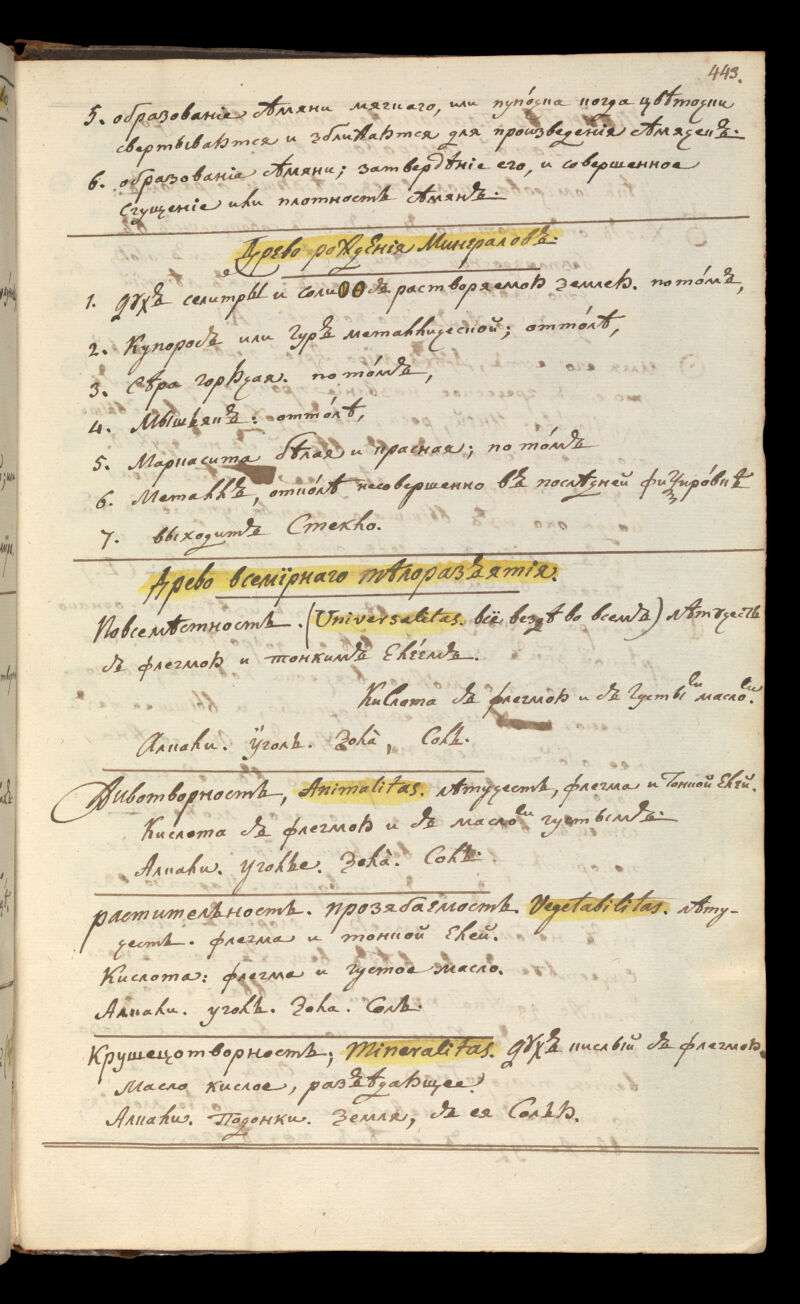 443.
5. образованіе сѣмяни мягкаго, или пупочка когда цвѣточки
свертываются и зближаются для произведенія сѣмячекъ.
6. образованіе сѣмяни; затвердѣніе его, и совершенное
сгущеніе или плотность сѣмянъ.
Древо рожденія Минераловъ.
1. духъ селитры и соли съ растворяемою землею. потомъ,
2. Купоросъ или гуръ металлической; оттолѣ,
3. Сѣра горючая. потомъ,
4. Мышьякъ: оттолѣ,
5. Маркасита бѣлая и красная; потомъ
6. Металлъ, отколѣ несовершенно въ послѣдней фиѯировкѣ
7. выходитъ Стекло.
Древо всемїрнаго тѣлоразъятія.
Повсемѣстность. (Universalitas. всё вездѣ во всемъ) лѣтучесть
съ флегмою и тонкимъ Елеемъ.
Кислота съ флегмою и съ густымъ масломъ.
Алкали. Уголь. Зола, Соль.
Животворность, Animalitas. лѣтучесть, флегма и Тонкой Елей.
Кислота съ флегмою и съ масломъ густымъ.
Алкали. Уголье. Зола. Соль.
растительность. прозябаемость. Vegetabilitas. лѣту-
честь. флегма и тонкой Елей.
Кислота: флегма и густое масло.
Алкали. уголь. Зола. Соль.
Крушецотворность; Mineralitas. духъ кислый съ флегмою.
Масло кислое, разъѣдающее.
Алкали. Подонки. Земля, съ ея Солью.